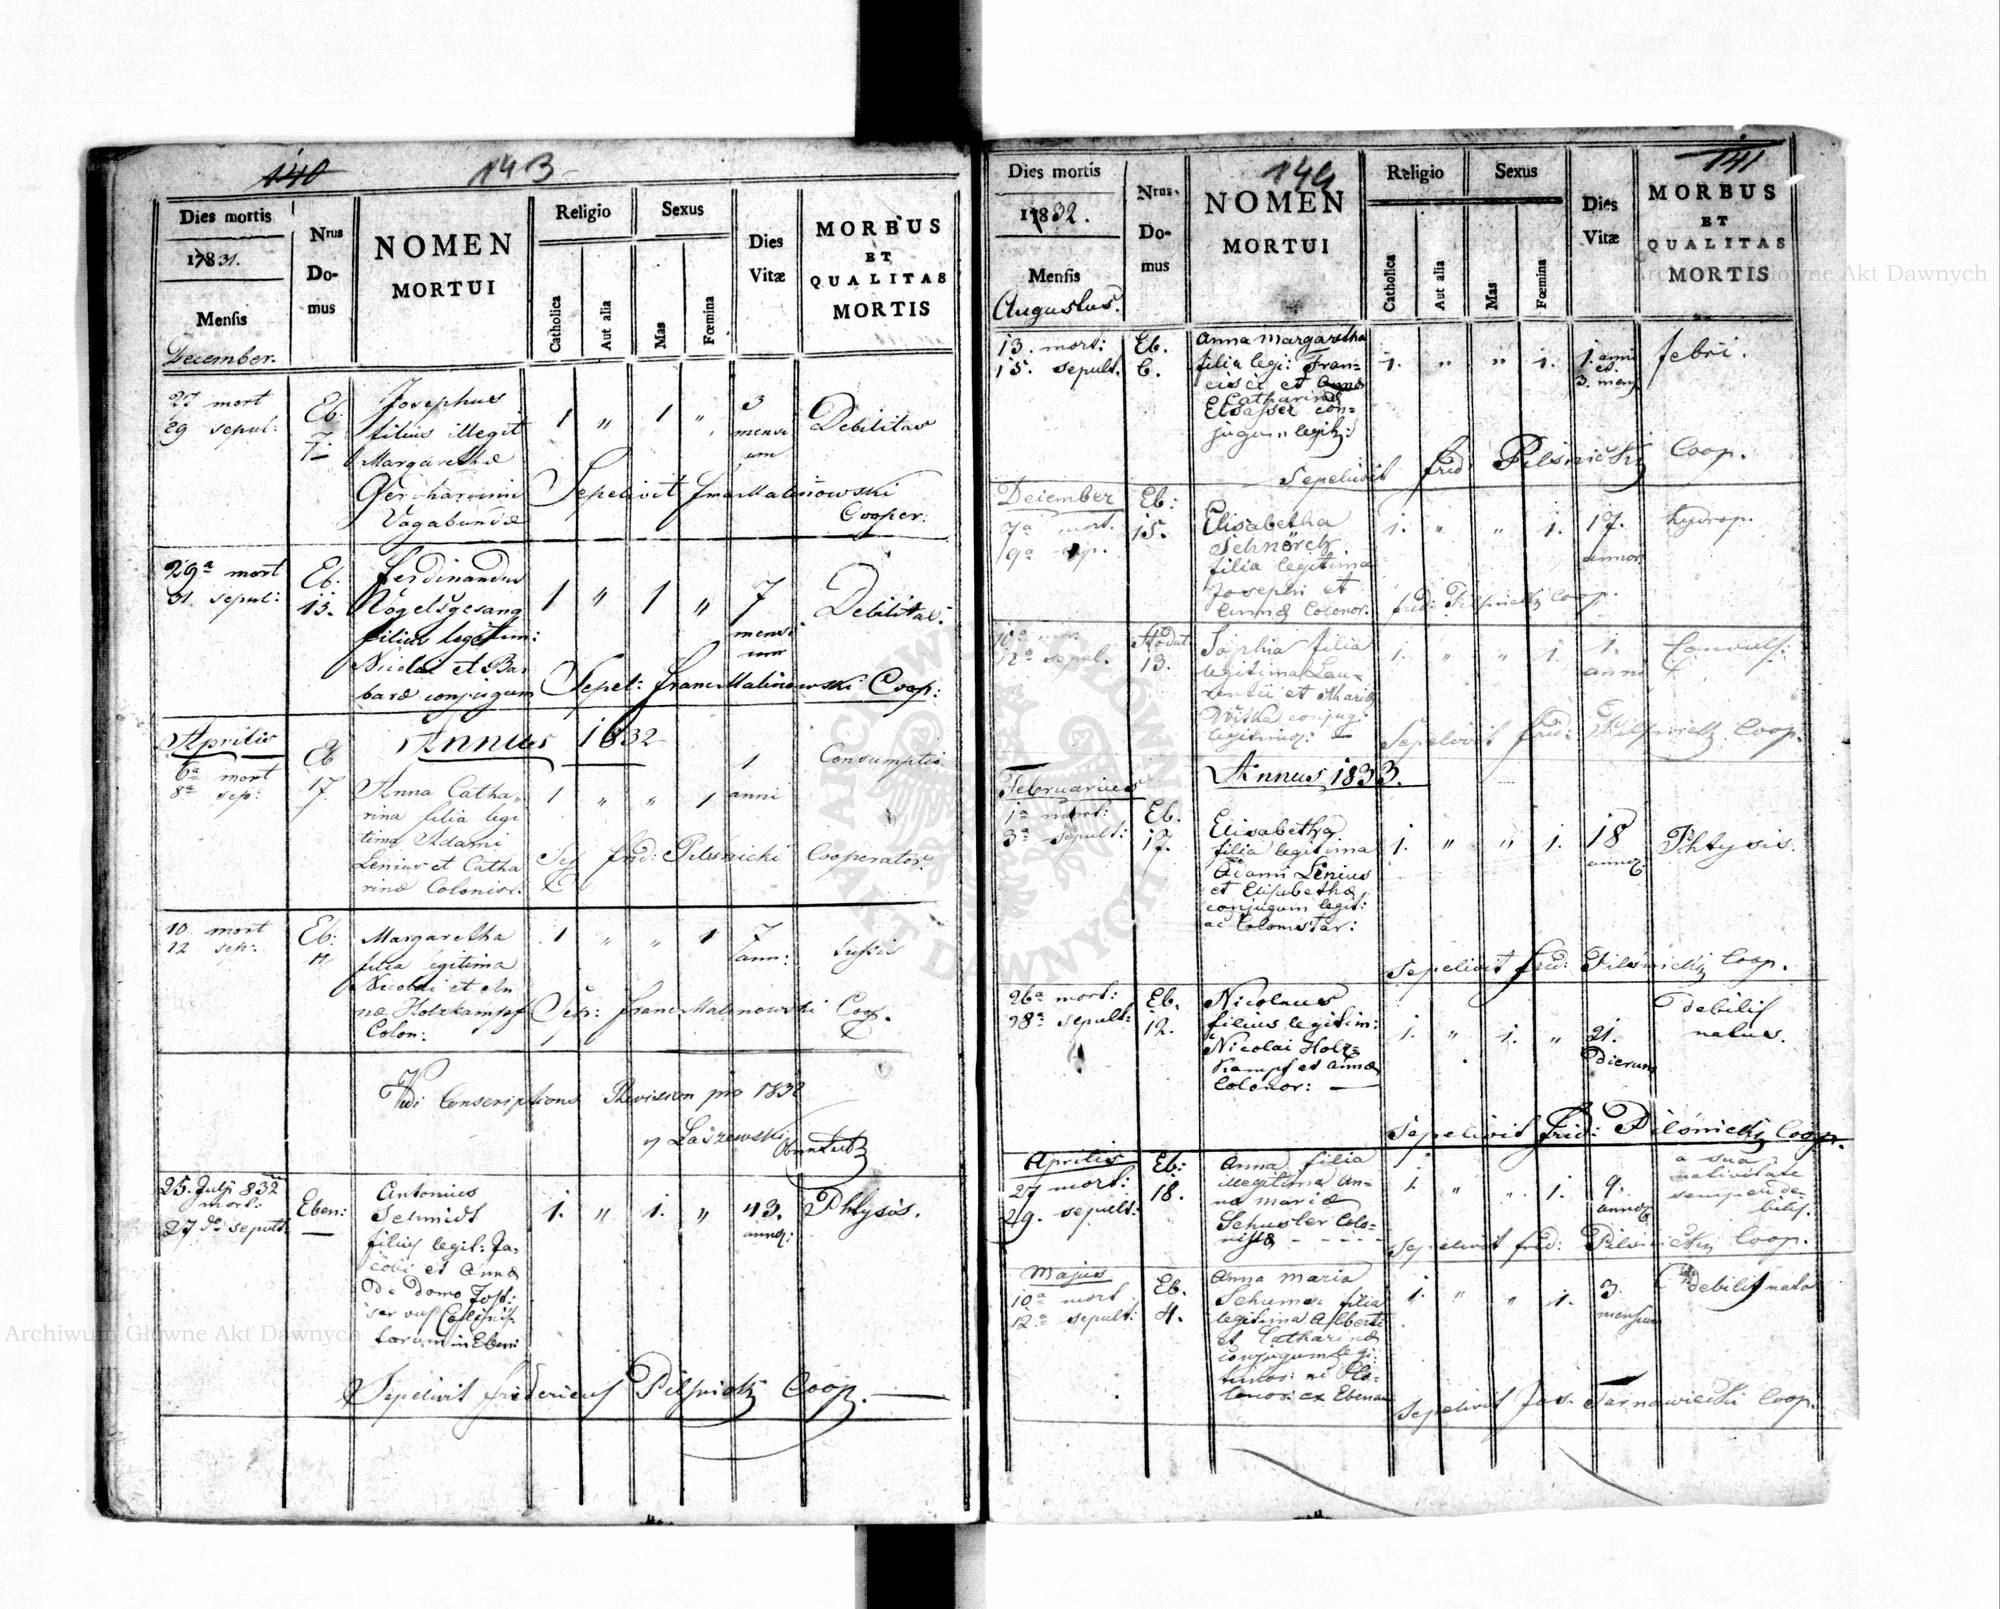 140
143
Dies mortis
1831.
Mensis
December.
Nrus
Do-
mus
NOMEN
MORTUI
Religio
Catholica
Aut alia
Sexus
Mas
Fœmina
Dies
Vitæ
MORBUS
ET
QUALITAS
MORTIS
27 mort
29 sepul:
Eb:
7.
Josephus
filius illegit
Margarethæ
Vagabundæ
1 " 1 "
3
mensi
um
Debilitas
Sepelivit Franc Malinowski
Cooper:
29a mort
31 sepul:
Eb:
13.
Ferdinandus
Vogelsgesang
filius legitim:
Nicolai et Bar
baræ conjugum
1 " 1 "
7
mensi
um
Debilitas.
Sepel: Franc Malinowski Coop:
Aprilis
Annus 1832
6a mort
8a sep:
Eb
17
Anna Catha
rina filia legi
tima Adami
Lenius et Catha
rinæ Colonist.
1 " " 1
1
anni
Consumptio
Sep frid: Pilsnicki Cooperator
10 mort
12 sep:
Eb:
Margaretha
filia legitima
Nicolai et An
næ Holzkampf
Colon:
1 " " 1
7
ann:
tussis
Sep: Franc Malinowski Coop.
Vidi Conscriptions Revision pro 1832
Laszewski
25. Julji 832
mort:
27 do sepult:
Eben:
Antonius
Schmidt
filius legit: Ja-
cobi et Annæ
De Domo
torum in Eben:
1. " 1. "
43.
annor:
Phtysis.
Sepelivit fridericus Pilsnicky Coop.
144
141
Dies mortis
1832.
Mensis
Augustus.
Nrus.
Do-
mus
NOMEN
MORTUI
Religio
Catholica
Aut alia
Sexus
Mas
Fœmina
Dies
Vitæ
MORBUS
ET
QUALITAS
MORTIS
13. mort:
15. sepult.
Eb.
6.
Anna Margaretha
filia legi: Fran-
cisci et Anna
Catharinæ
Elsasser con-
jugum legit:
1. " " 1.
1. anni
et
3. mens
febri.
Sepelivit frid: Pilsnicky Coop.
December
7a mort.
9a sep.
Eb:
15.
Elisabetha
Schnörch
filia legitima
Josephi et
Annæ Colonor.
1. " " 1.
17.
annor.
hydrop.
frid: Pilsnicky Coop.
10a mort
12a sepul.
13.
Sophia filia
legitima Lau-
rentii et Mariæ
Witka conjugi
legitimor:
1. " " 1.
1.
anni
Convuls:
Sepelivit frid: Pilsnicky Coop.
Februarius
Annus 1833.
1a mort:
3a sepult:
Eb.
17.
Elisabetha
filia legitima
Adami Lenius
et Elisabethæ
conjugum legit:
ac Colonistar:
1. " " 1.
18
annor.
Phtysis.
Sepelivit frid: Pilsnicky Coop.
26a mort:
28a sepult:
Eb.
12.
Nicolaus
filius legitim:
Nicolai Holz-
kampf et Annæ
Colonor:
1. " 1. "
21.
Dierum
debilis
natus.
Sepelivit frid: Pilsnicky Coop.
Aprilis
27 mort:
29. sepult:
Eb:
18.
Anna filia
illegitima An-
na Mariæ
Schusler Colo-
nistæ
1. " " 1.
9.
annor
a sua
nativitate
semper de-
bilis.
Sepelivit frid: Pilsnicky Coop.
Majus
10a mort
12a sepult:
Eb.
4.
Anna Maria
Schumer filia
legitima Alberti
et Catharinæ
conjugum legi-
timor: ac Co-
lonor: ex Ebenau
1. " " 1.
3.
mensium
debilis nata
Sepelivit Jos. Tarnawiecki Coop.
ARCHIWUM GŁÓWNE AKT DAWNYCH
Archiwum Główne Akt Dawnych
Archiwum Główne Akt Dawnych